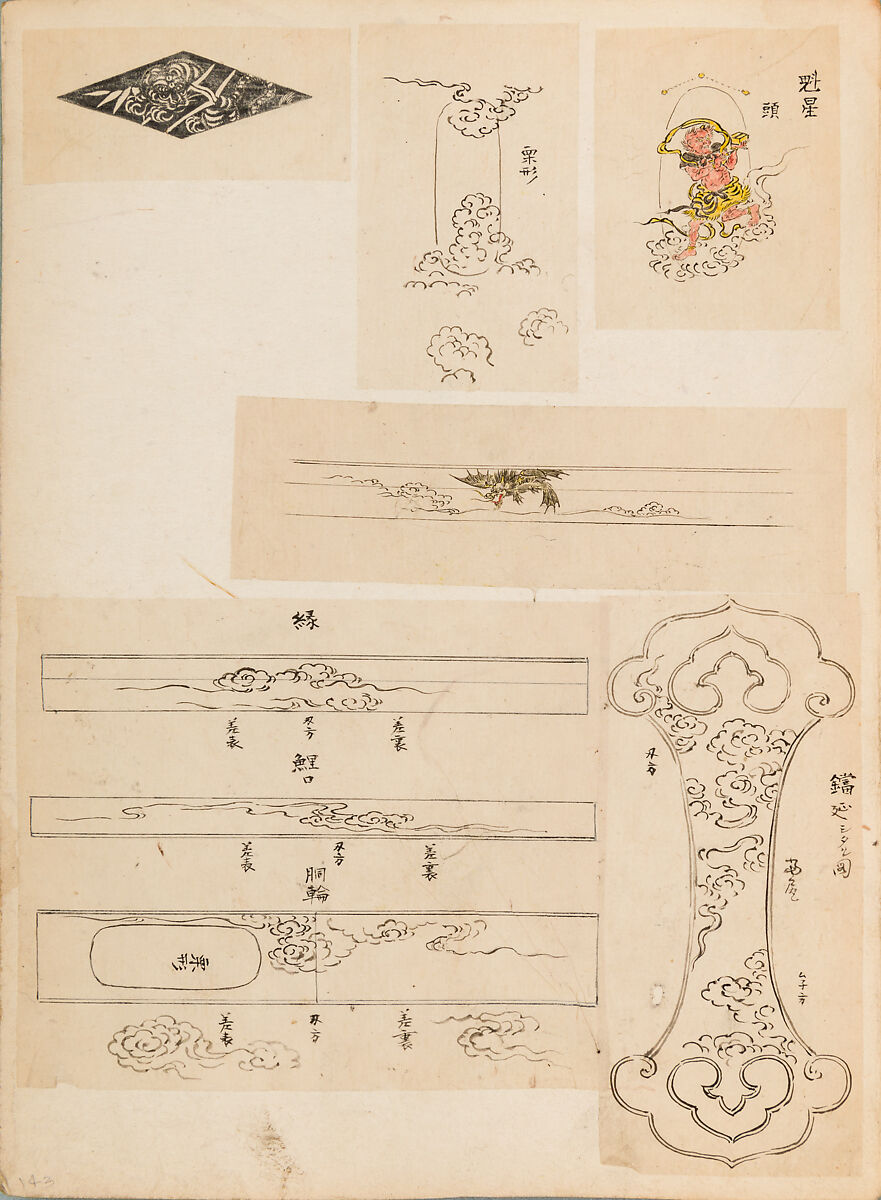 魁星
頭
栗形
縁
差表
刄方
差裏
鯉口
差表
刄方
差裏
胴輪
栗形
差表
刄方
差裏
刄方
鐺
延シタル圖
ムネ方
143